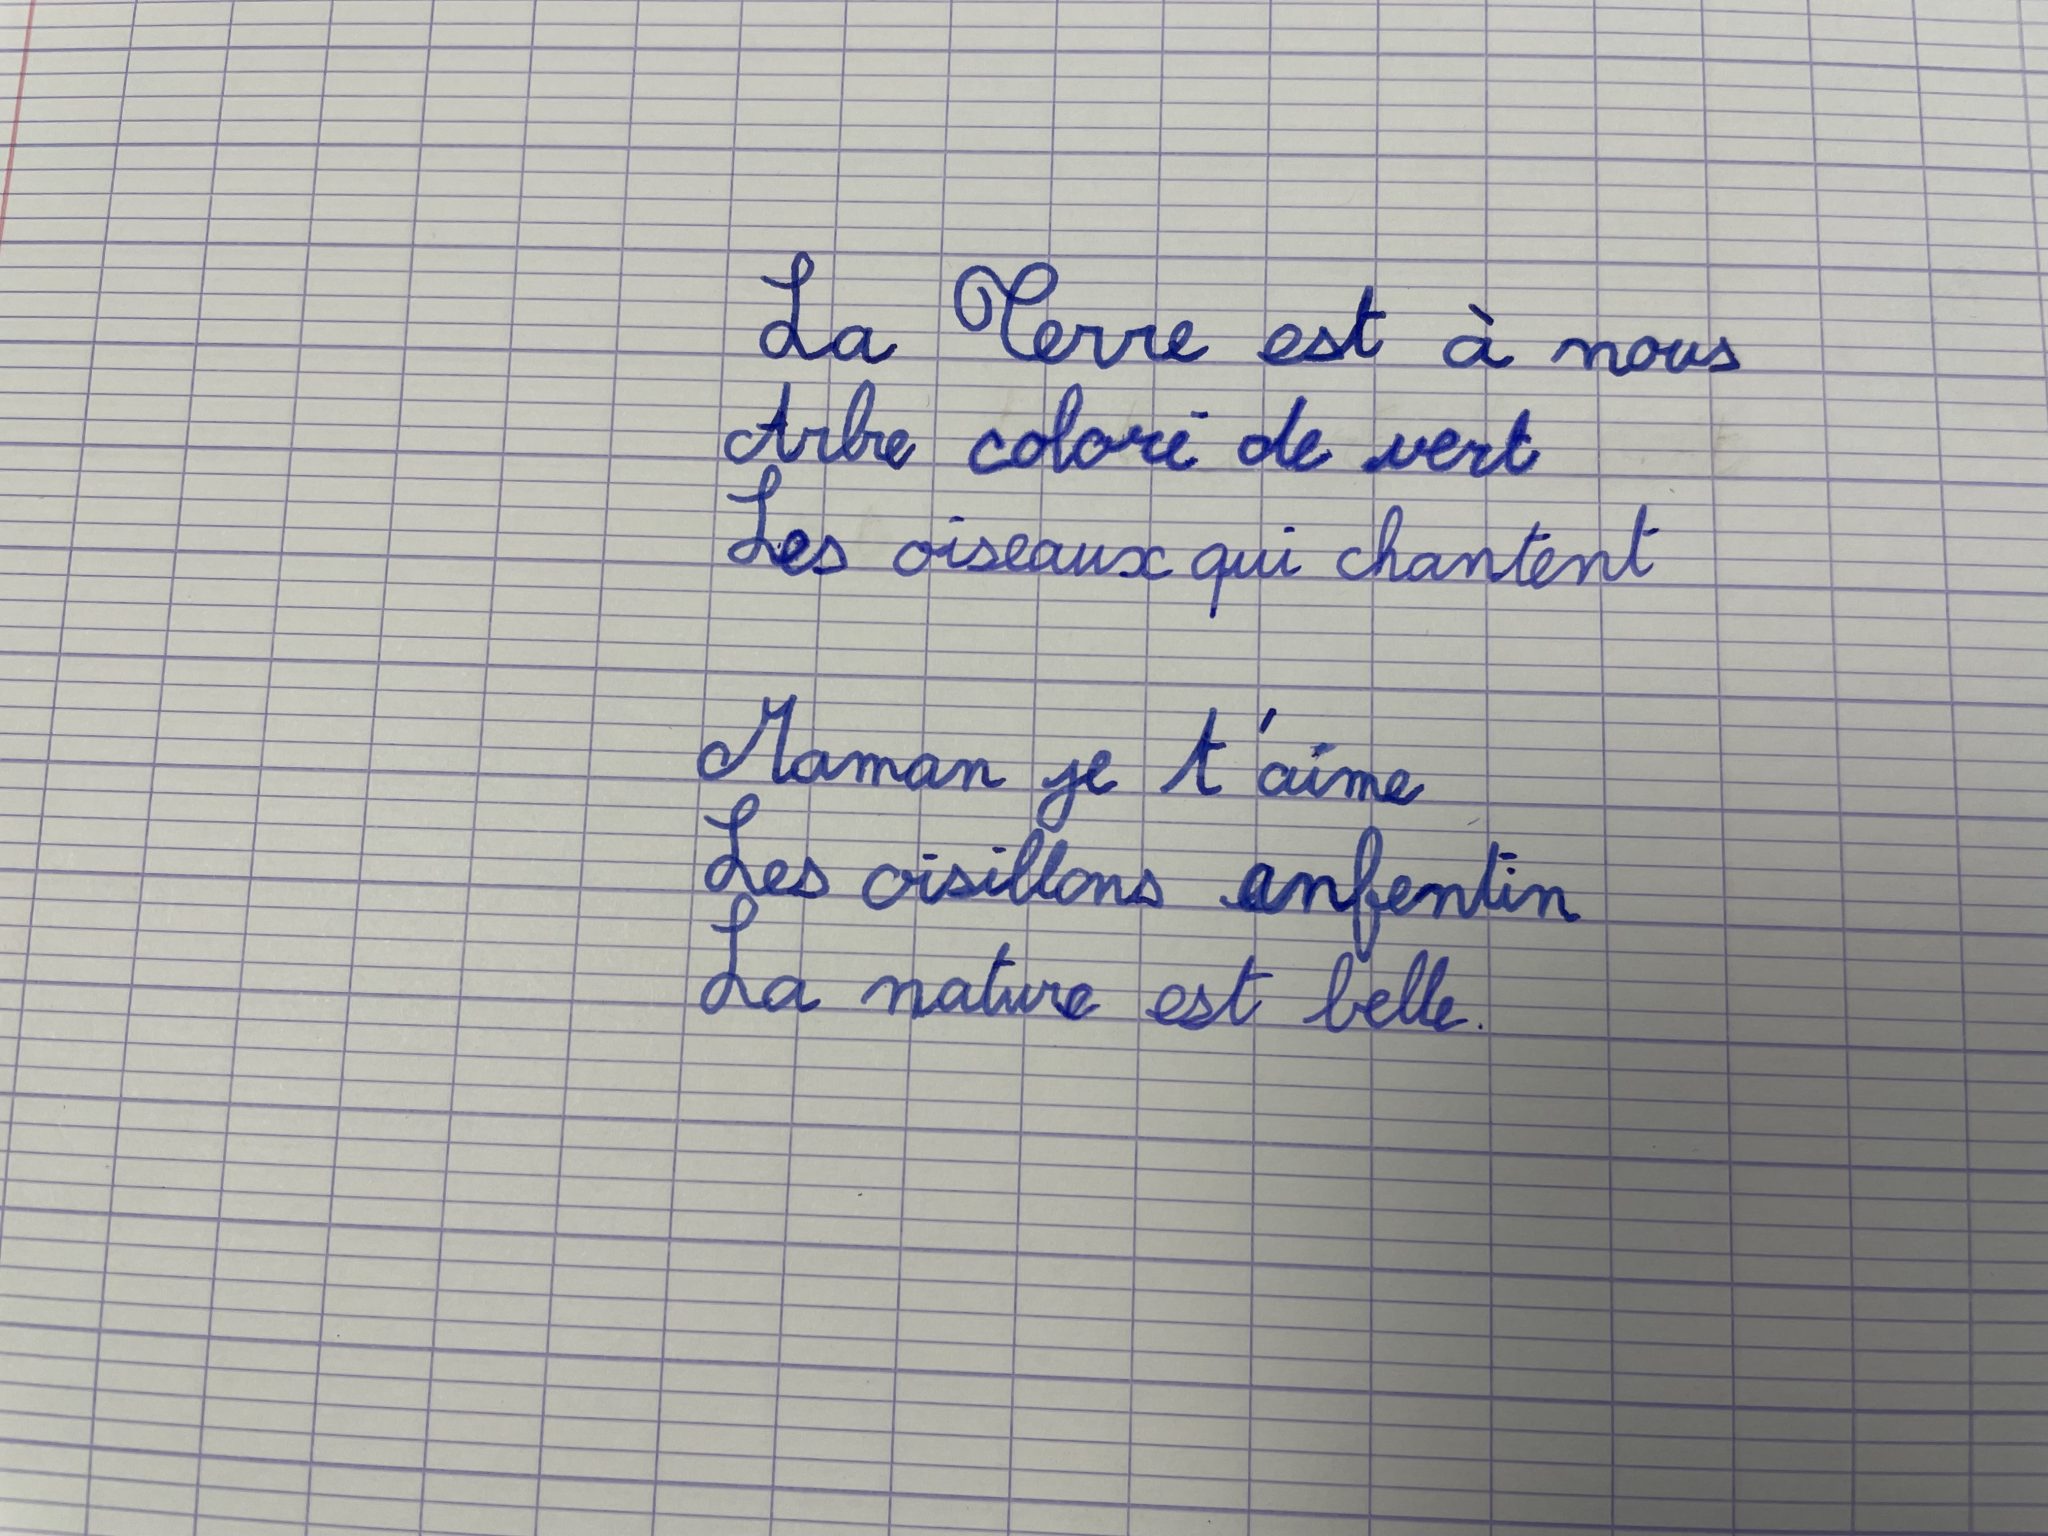 La Terre est à nous
Arbre colori de vert
Les oiseaux qui chantent
Maman je t'aime
Les oisillons anfentin
La nature est belle.